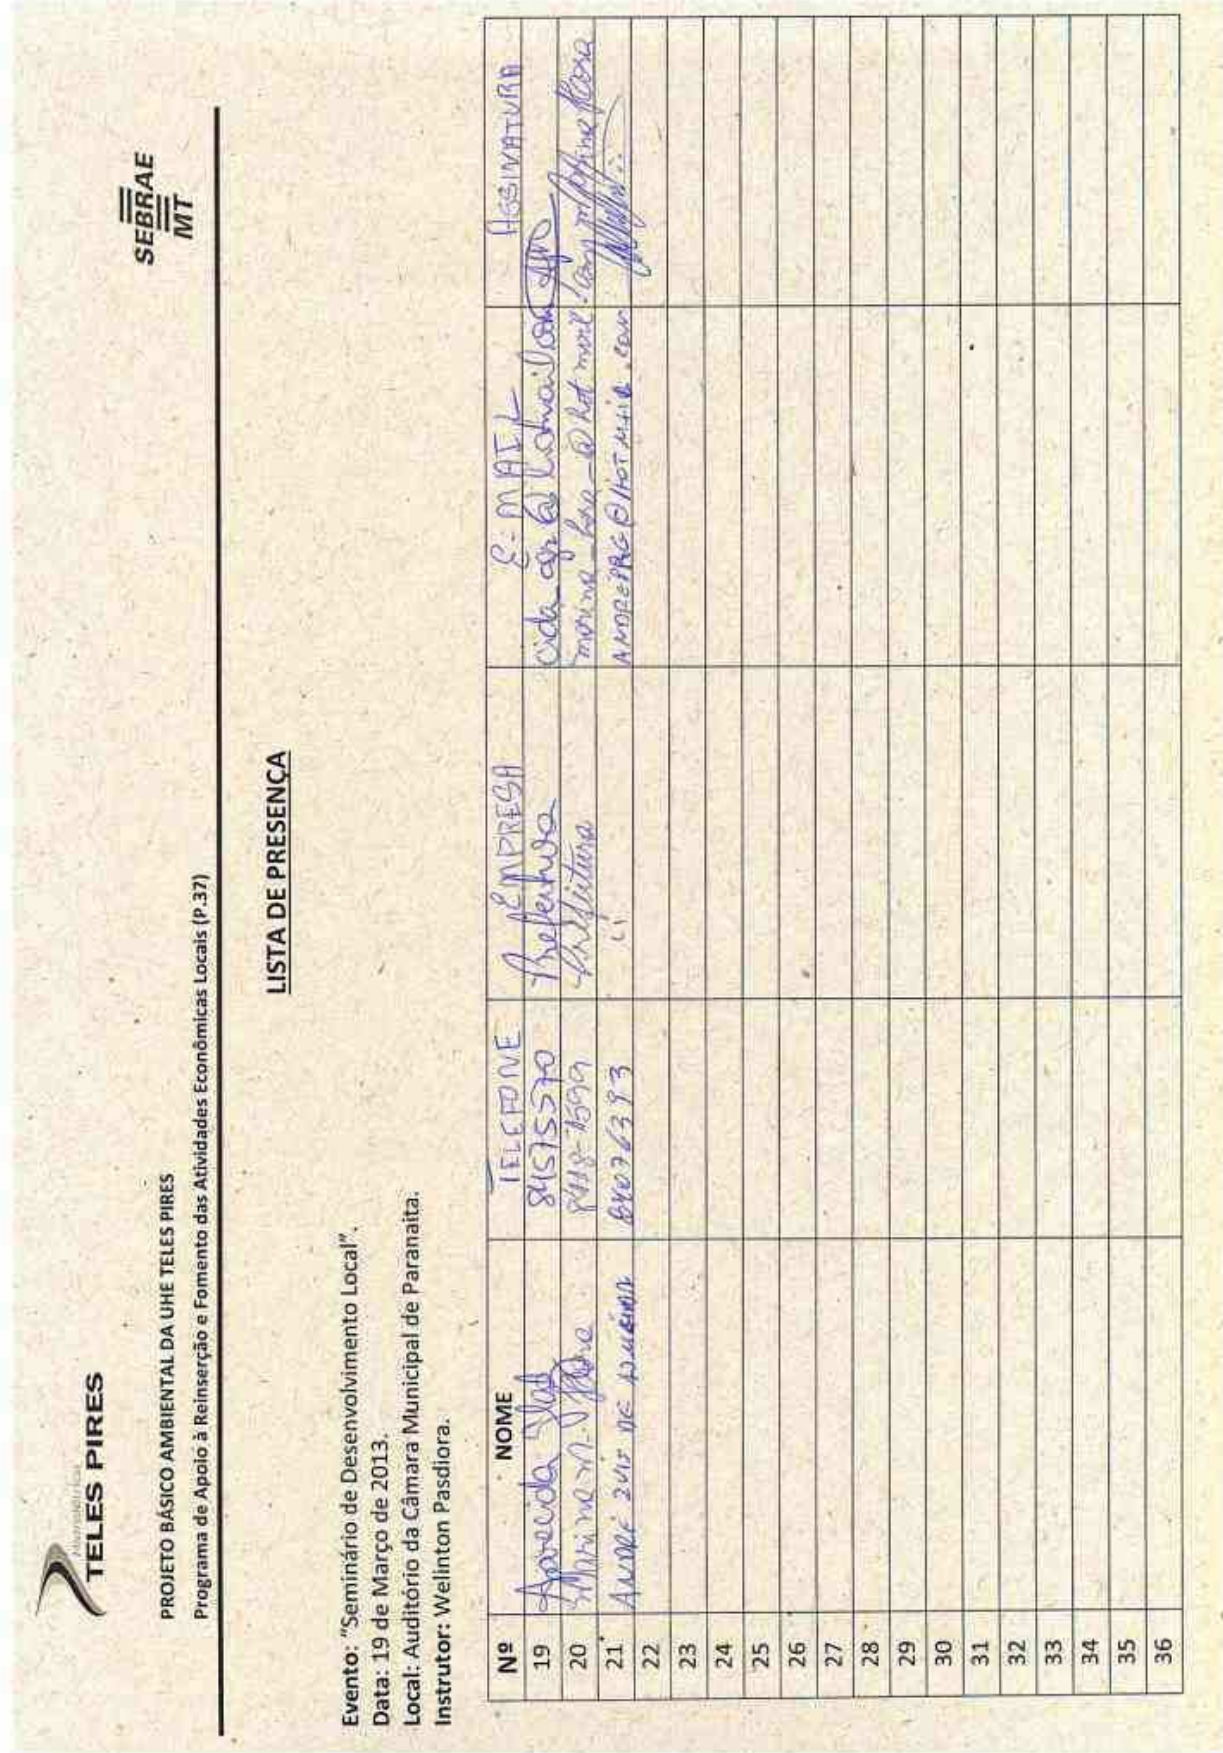 Hidrelétrica
TELES PIRES
SEBRAE
MT
PROJETO BÁSICO AMBIENTAL DA UHE TELES PIRES
Programa de Apoio à Reinserção e Fomento das Atividades Econômicas Locais (P.37)
LISTA DE PRESENÇA
Evento: "Seminário de Desenvolvimento Local".
Data: 19 de Março de 2013.
Local: Auditório da Câmara Municipal de Paranaita.
Instrutor: Welinton Pasdiora.
Nº NOME TELEFONE EMPRESA E-MAIL ASSINATURA
19 Aparecida 84575570 Prefeitura
20 Marina Prefeitura Marina Rosa
21 ANDRÉ LUIS DE 84076393 "
22
23
24
25
26
27
28
29
30
31
32
33
34
35
36